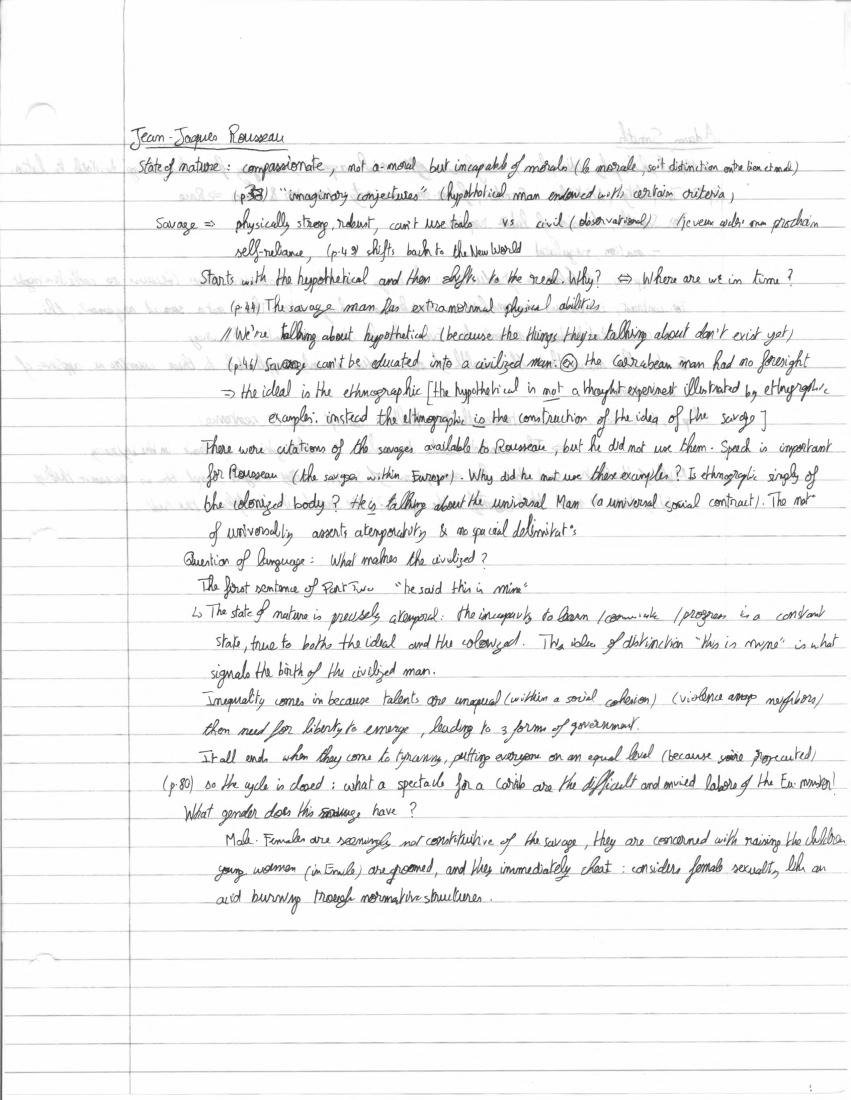 Jean-Jaques Rousseau
State of nature : compassionate, not a-moral but incapable of morals (la morale, soit distinction entre bien et mal)
"imaginary conjectures" (hypothetical man endowed with certain criteria)
Savage ⇒ physically strong, robust, can't use tools vs civil (observational)
self-reliance, (p.49) shifts back to the New World
Starts with the hypothetical and then shifts to the real. Why? ⇔ Where are we in time?
(p.44) The savage man has extranormal physical abilities
// We're talking about hypothetical (because the things they're talking about don't exist yet)
(p.46) Savage can't be educated into a civilized man. ex the Carrabean man had no foresight
⇒ the ideal is the ethnographic [the hypothetical is not a thought experiment illustrated by ethnographic
examples. instead the ethnographic is the construction of the idea of the savage]
There were citations of the savages available to Rousseau, but he did not use them. Speech is important
for Rousseau (the savages within Europe). Why did he not use these examples? Is ethnographic simply of
the colonized body? He is talking about the universal Man (a universal social contract). The not°
of universality asserts atemporality & no spacial delimitat°s
Question of language : What makes the civilized?
The first sentence of Part Two "he said this is mine"
↳ The state of nature is precisely atemporal : the incapacity to learn / communicate / progress is a constant
state, true to both the ideal and the colonized. This idea of distinction "this is mine" is what
signals the birth of the civilized man.
Inequality comes in because talents are unequal (within a social cohesion) (violence among neighbors)
then need for liberty to emerge, leading to 3 forms of government.
It all ends when they come to tyranny, putting everyone on an equal level (because you're prosecuted)
(p.80) so the cycle is closed : what a spectacle for a Carib are the difficult and envied labors of the Eu. minister!
What gender does this savage have?
Male. Females are seemingly not constitutive of the savage, they are concerned with raising the children
young women (in Emile) are groomed, and they immediately cheat : considers female sexuality like an
acid burning trough normative structures.